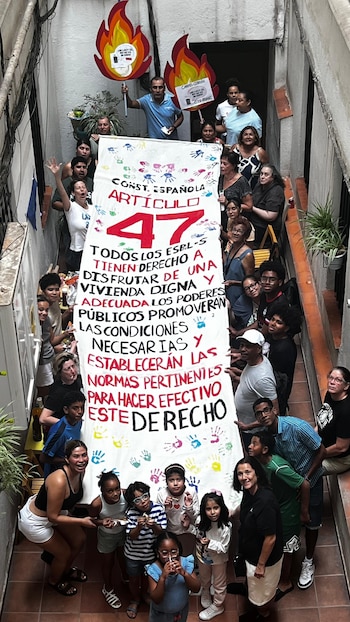 CONST. ESPAÑOLA
ARTÍCULO
47
TODOS LOS ESPÑLS
TIENEN DERECHO A
DISFRUTAR DE UNA
VIVIENDA DIGNA Y
ADECUADA LOS PODERES
PÚBLICOS PROMOVERÁN
LAS CONDICIONES
NECESARIAS Y
ESTABLECERÁN LAS
NORMAS PERTINENTES
PARA HACER EFECTIVO
ESTE DERECHO